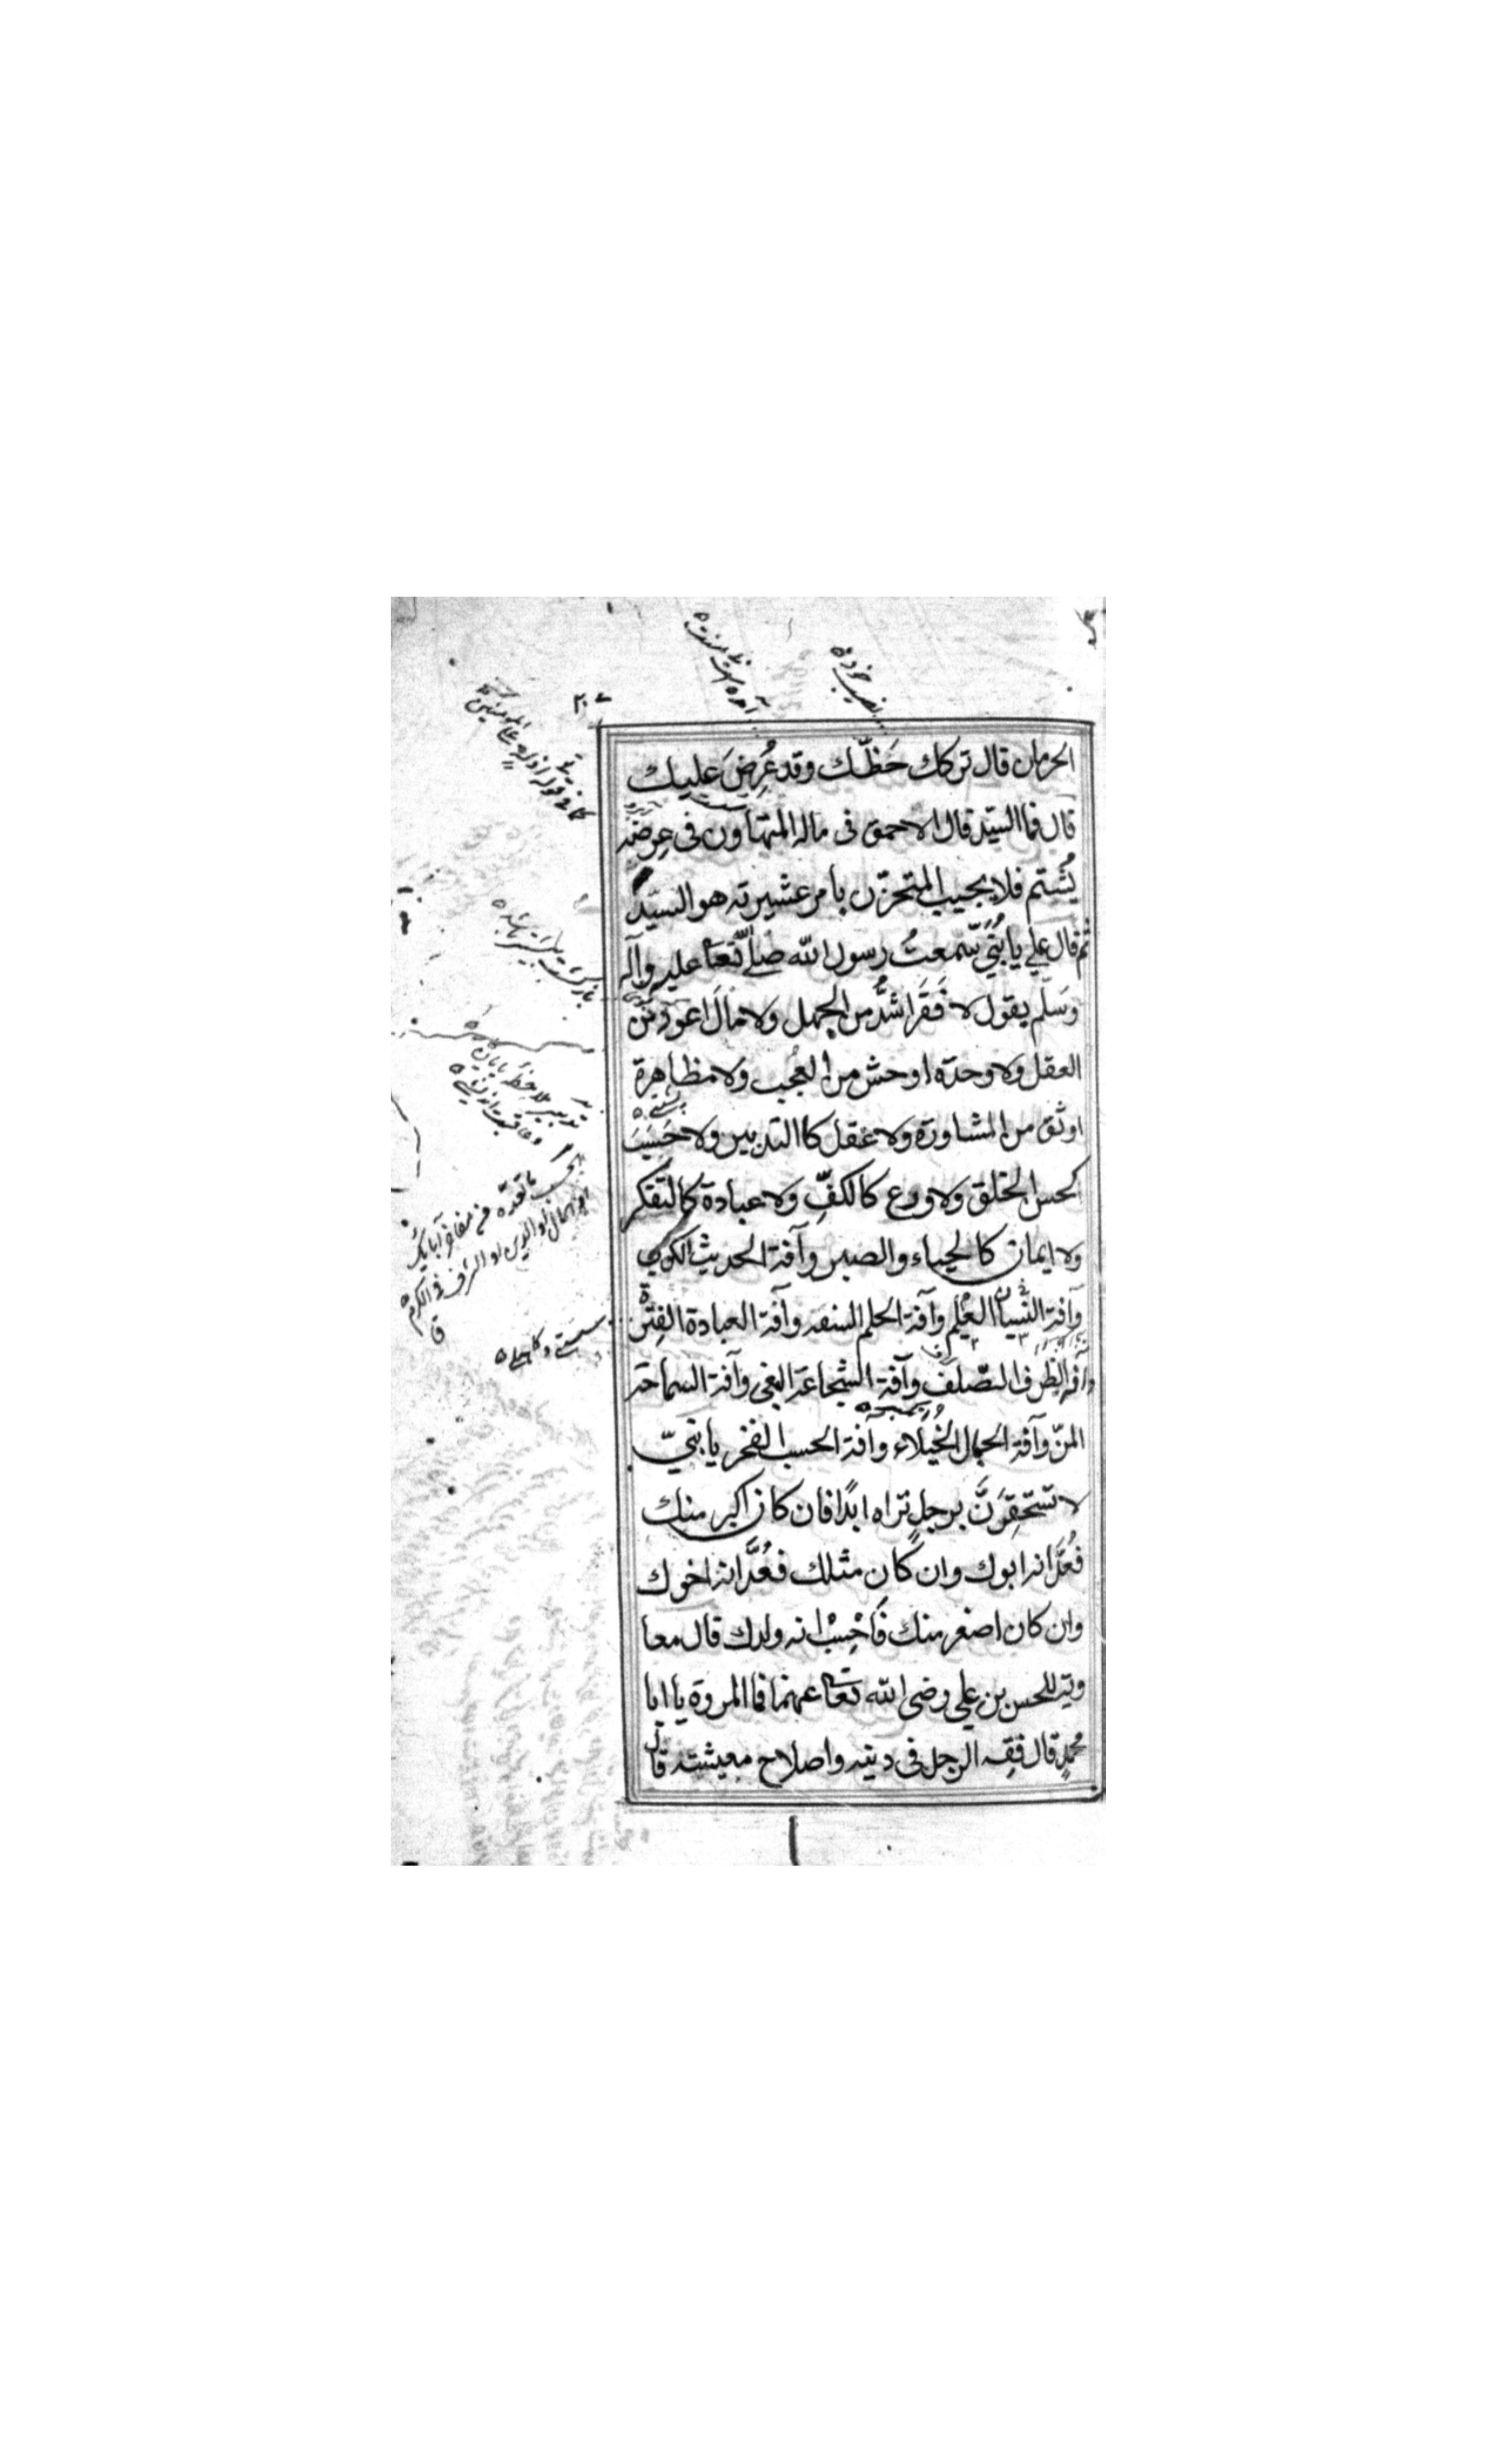 الحرمان قال تركك حَظّك وقد عُرِضَ عليك
قال فما السيّد قال الاحمق فى ماله المتهاون فى عِرضه
يُشتم فلا يجيب المتحزّن بامر عشيرته هو السيّد
ثم قال علي يا بُنَيّ سمعتُ رسول الله صلّى تعا عليه وآله
وسَلّم يقول لا فَقَرَ اشدُّ من الجهل ولا مالَ اعودُ من
العقل ولا وحدة اوحش من العجب ولا مظاهرة
اوثق من المشاورة ولا عقل كالتدبير ولا حَسَبَ
كحسن الخلق ولا ورع كالكفِّ ولا عبادة كالتفكر
ولا ايمان كالحياء والصبر وآفة الحديث الكذب
وآفة النسيان العلم وآفة الحلم السفه وآفة العبادة الفترة
وآفة الظرف الصلف وآفة الشجاعة البغى وآفة السماحة
المنّ وآفة الجمال الخُيَلاء وآفة الحسب الفخر يا بنيّ
لا تستحقِرَنَّ برجلٍ تراه ابدًا فان كان اكبر منك
فعُدَّ انه ابوك وان كان مثلك فعُدَّ انه اخوك
وان كان اصغر منك فَاحْسِبْ انه ولدك قال معا
وية للحسن بن علي رضى الله تعا عنهما فما المروة يا ابا
محمدٍ قال فِقه الرجل فى دينه واصلاح معيشته قال
نصيب خود ٥
تدبير ملاحظه پايان كار
ما تعدّه من مفاخر آبائك
او المال او الدين او الشرف فى الكرم
ق
سستى وكاهلى ٥